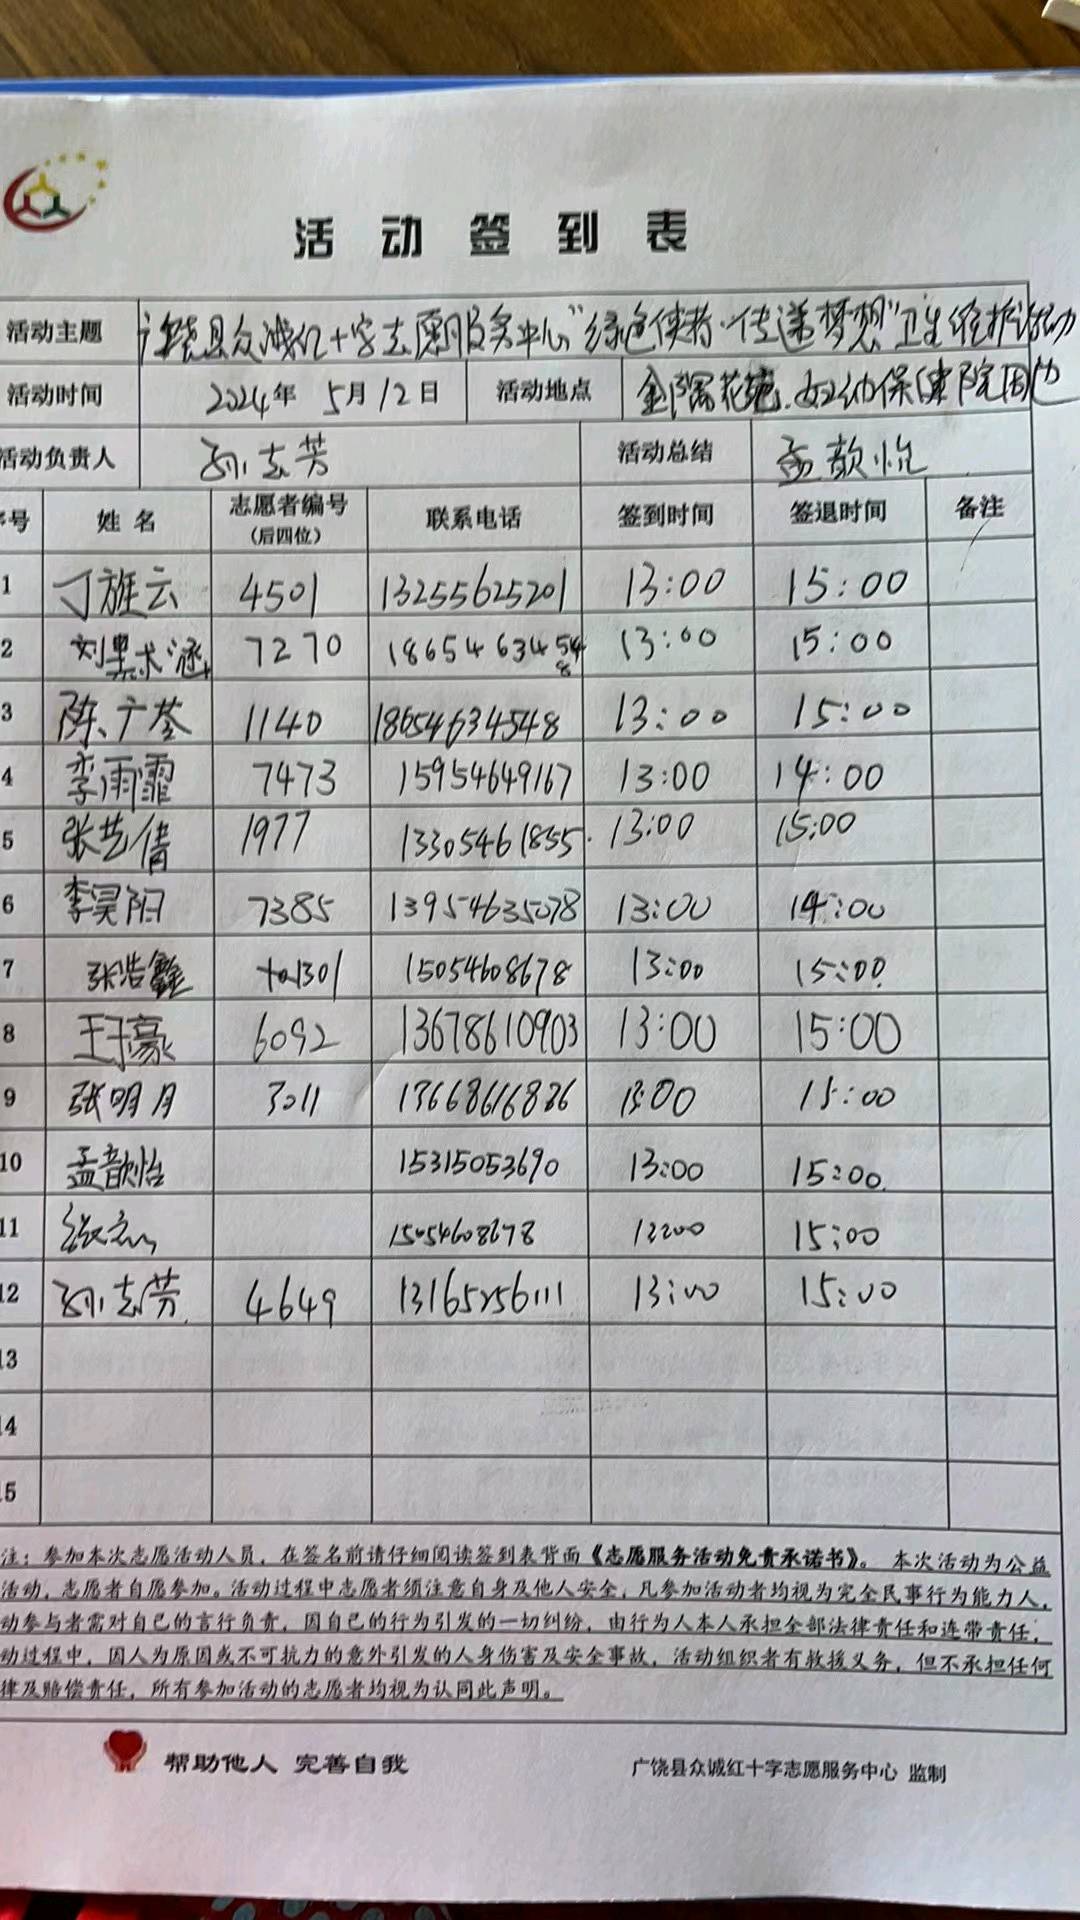 活动签到表
活动主题 广饶县众诚红十字志愿服务中心"绿色使者·传递梦想"卫生维护活动
活动时间 2024年 5月12日 活动地点 金 花苑.妇幼保健院周边
活动负责人 孙志芳 活动总结 孟歆怡
序号 姓名 志愿者编号（后四位） 联系电话 签到时间 签退时间 备注
1 丁旌云 4501 13255625201 13:00 15:00
2 刘 涵 7270 13:00 15:00
3 陈广苓 1140 18654634548 13:00 15:00
4 李雨霏 7473 15954649167 13:00 14:00
5 张艺倩 1977 13305461855 13:00 15:00
6 李昊阳 7385 13954635078 13:00 14:00
7 张浩鑫 1301 15054608678 13:00 15:00
8 王子豪 6092 13678610903 13:00 15:00
9 张明月 3011 13668616826 13:00 15:00
10 孟歆怡 15315053690 13:00 15:00
11 15054608678 13:00 15:00
12 孙志芳 4649 13165256111 13:00 15:00
13
14
15
注：参加本次志愿活动人员，在签名前请仔细阅读签到表背面《志愿服务活动免责承诺书》。本次活动为公益
活动，志愿者自愿参加。活动过程中志愿者须注意自身及他人安全，凡参加活动者均视为完全民事行为能力人，
动参与者需对自己的言行负责，因自己的行为引发的一切纠纷，由行为人本人承担全部法律责任和连带责任，
动过程中，因人为原因或不可抗力的意外引发的人身伤害及安全事故，活动组织者有救援义务，但不承担任何
律及赔偿责任，所有参加活动的志愿者均视为认同此声明。
帮助他人 完善自我
广饶县众诚红十字志愿服务中心 监制